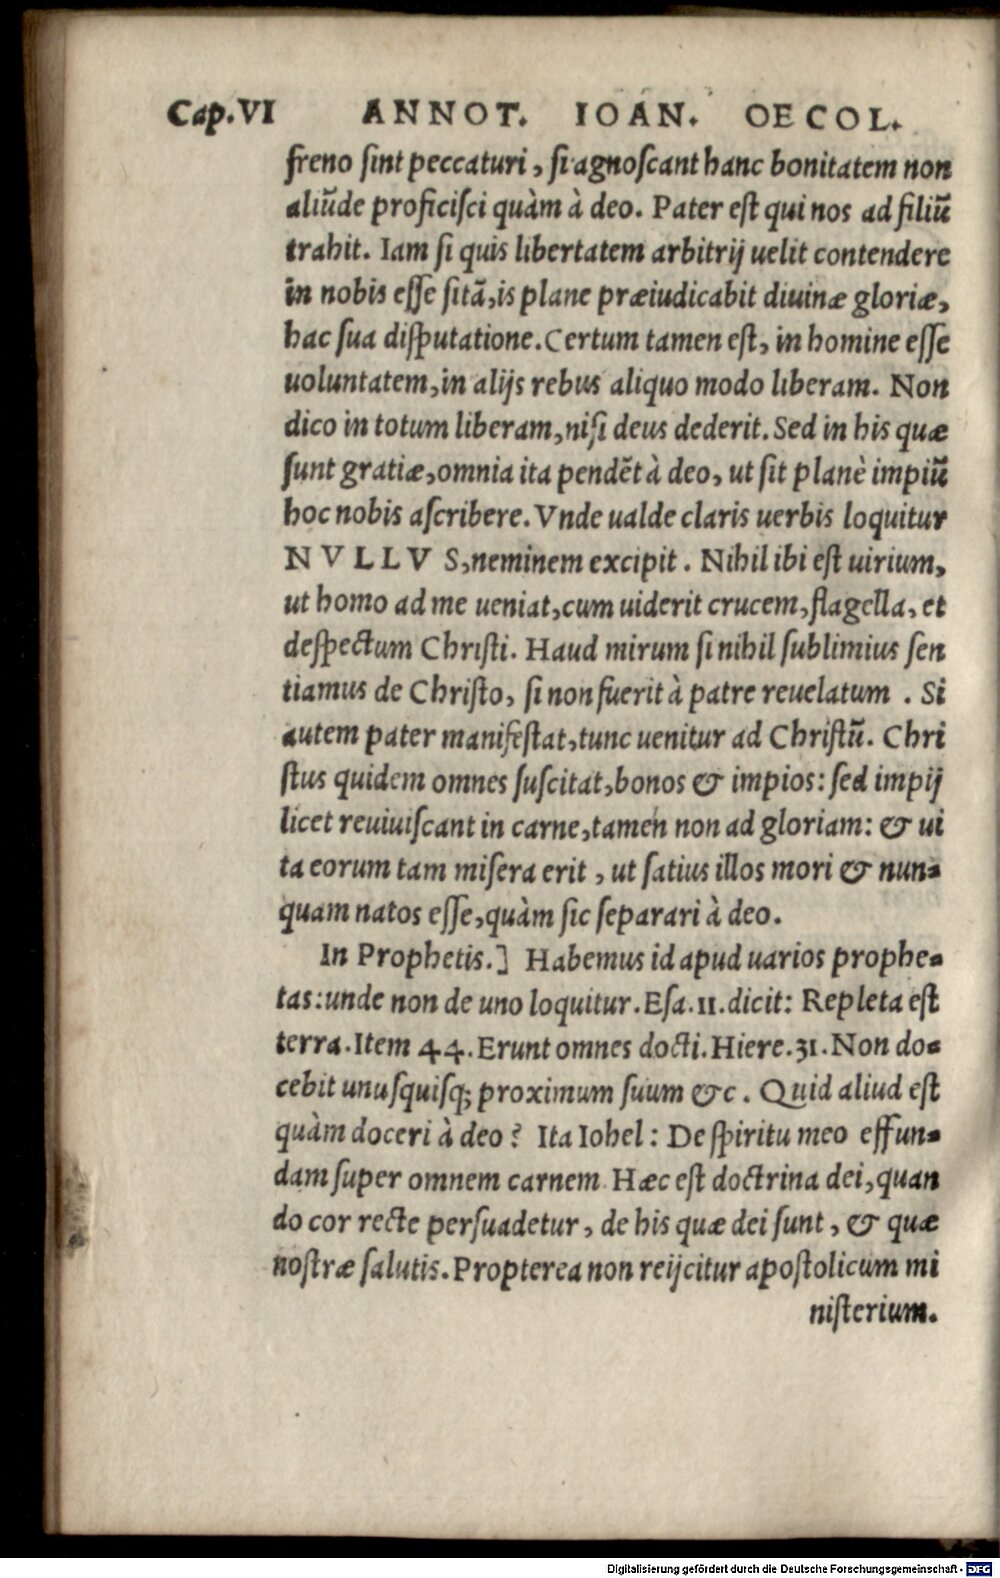 Cap.VI ANNOT. IOAN. OECOL.
freno sint peccaturi, si agnoscant hanc bonitatem non
aliũde proficisci quàm à deo. Pater est qui nos ad filiũ
trahit. Iam si quis libertatem arbitrij uelit contendere
in nobis esse sitã, is plane præiudicabit diuinæ gloriæ,
hac sua disputatione. Certum tamen est, in homine esse
uoluntatem, in alijs rebus aliquo modo liberam. Non
dico in totum liberam, nisi deus dederit. Sed in his quæ
sunt gratiæ, omnia ita pendẽt à deo, ut sit planè impiũ
hoc nobis ascribere. Vnde ualde claris uerbis loquitur
NVLLVS, neminem excipit. Nihil ibi est uirium,
ut homo ad me ueniat, cum uiderit crucem, flagella, et
despectum Christi. Haud mirum si nihil sublimius sen
tiamus de Christo, si non fuerit à patre reuelatum. Si
autem pater manifestat, tunc uenitur ad Christũ. Chri
stus quidem omnes suscitat, bonos & impios: sed impij
licet reuiuiscant in carne, tamen non ad gloriam: & ui
ta eorum tam misera erit, ut satius illos mori & nun-
quam natos esse, quàm sic separari à deo.
In Prophetis.] Habemus id apud uarios prophe-
tas: unde non de uno loquitur. Esa. 11. dicit: Repleta est
terra. Item 44. Erunt omnes docti. Hiere. 31. Non do-
cebit unusquisq; proximum suum &c. Quid aliud est
quàm doceri à deo? Ita Iohel: De spiritu meo effun-
dam super omnem carnem. Hæc est doctrina dei, quan
do cor recte persuadetur, de his quæ dei sunt, & quæ
nostræ salutis. Propterea non reijcitur apostolicum mi
nisterium.
Digitalisierung gefördert durch die Deutsche Forschungsgemeinschaft - DFG